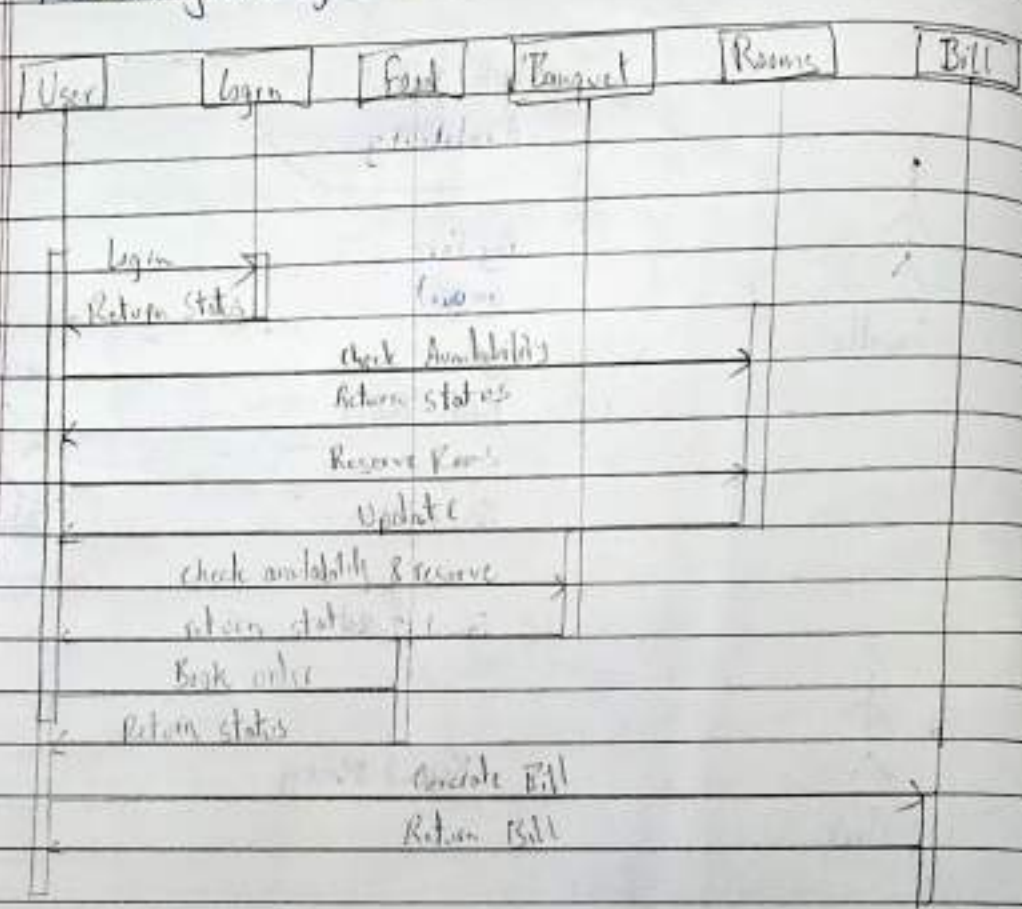 User Login Food Banquet Rooms Bill
Login
Return Status
Check Availability
Return status
Reserve Room
Update
check availability & reserve
return status
Book order
Return status
Generate Bill
Return Bill